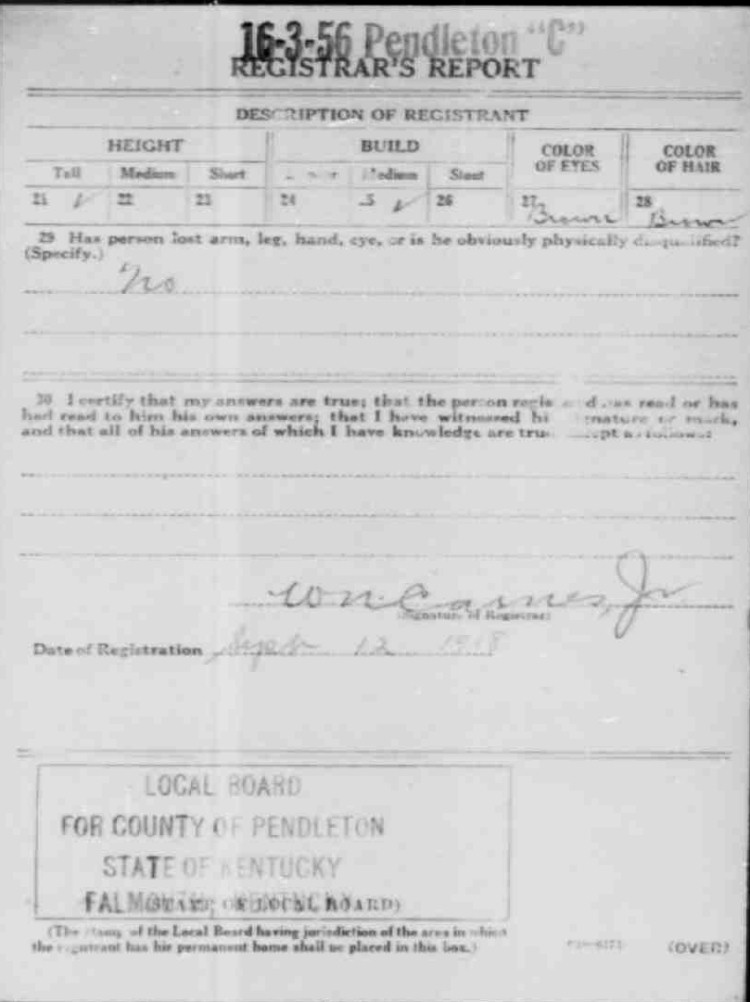 16-3-56 Pendleton "C"
REGISTRAR'S REPORT
DESCRIPTION OF REGISTRANT
HEIGHT BUILD COLOR OF EYES COLOR OF HAIR
Tall Medium Short Medium Stout
21 ✓ 22 23 24 ✓ 26 27 Brown 28 Brown
29 Has person lost arm, leg, hand, eye, or is he obviously physically disqualified?
(Specify.)
No
30 I certify that my answers are true; that the person has read or has
had read to him his own answers; that I have witnessed or mark,
and that all of his answers of which I have knowledge are as follows:
Carnes, Jr
(Signature of Registrar)
Date of Registration Sept 12 1918
LOCAL BOARD
FOR COUNTY OF PENDLETON
STATE OF KENTUCKY
FALMOUTH, KENTUCKY
(STAMP OF LOCAL BOARD)
(The stamp of the Local Board having jurisdiction of the area in which
the registrant has his permanent home shall be placed in this box.)
(OVER)